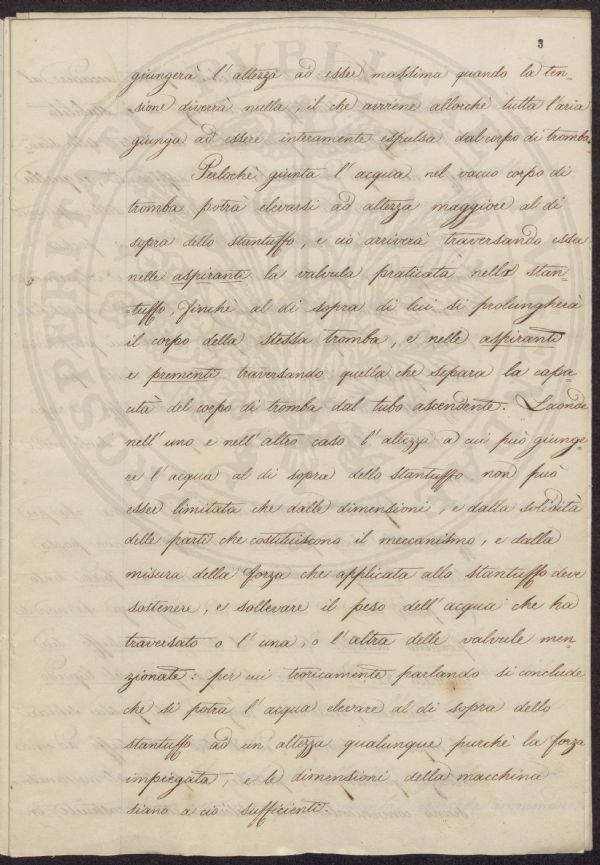 3
giungerà l'altezza ad esser massima quando la ten-
sione diverrà nulla, il che avviene allorchè tutta l'aria
giunga ad essere interamente espulsa dal corpo di tromba.
Perlochè giunta l'acqua nel vacuo corpo di
tromba potrà elevarsi ad altezza maggiore al di
sopra dello stantuffo, e ciò arriverà traversando essa
nelle aspiranti la valvula praticata nello stan-
tuffo, finchè al di sopra di lui si prolungherà
il corpo della stessa tromba, e nelle aspiranti
e prementi traversando quella che separa la capa-
cità del corpo di tromba dal tubo ascendente. Laonde
nell'uno e nell'altro caso l'altezza a cui può giunge-
re l'acqua al di sopra dello stantuffo non può
esser limitata che dalle dimensioni, e dalla solidità
delle parti che costituiscono il meccanismo, e dalla
misura della forza che applicata allo stantuffo deve
sostenere, e sollevare il peso dell'acqua che ha
traversato o l'una, o l'altra delle valvule men-
zionate: per cui teoricamente parlando si conclude
che si potrà l'acqua elevare al di sopra dello
stantuffo ad un altezza qualunque purchè la forza
impiegata, e le dimensioni della macchina
siano a ciò sufficienti.